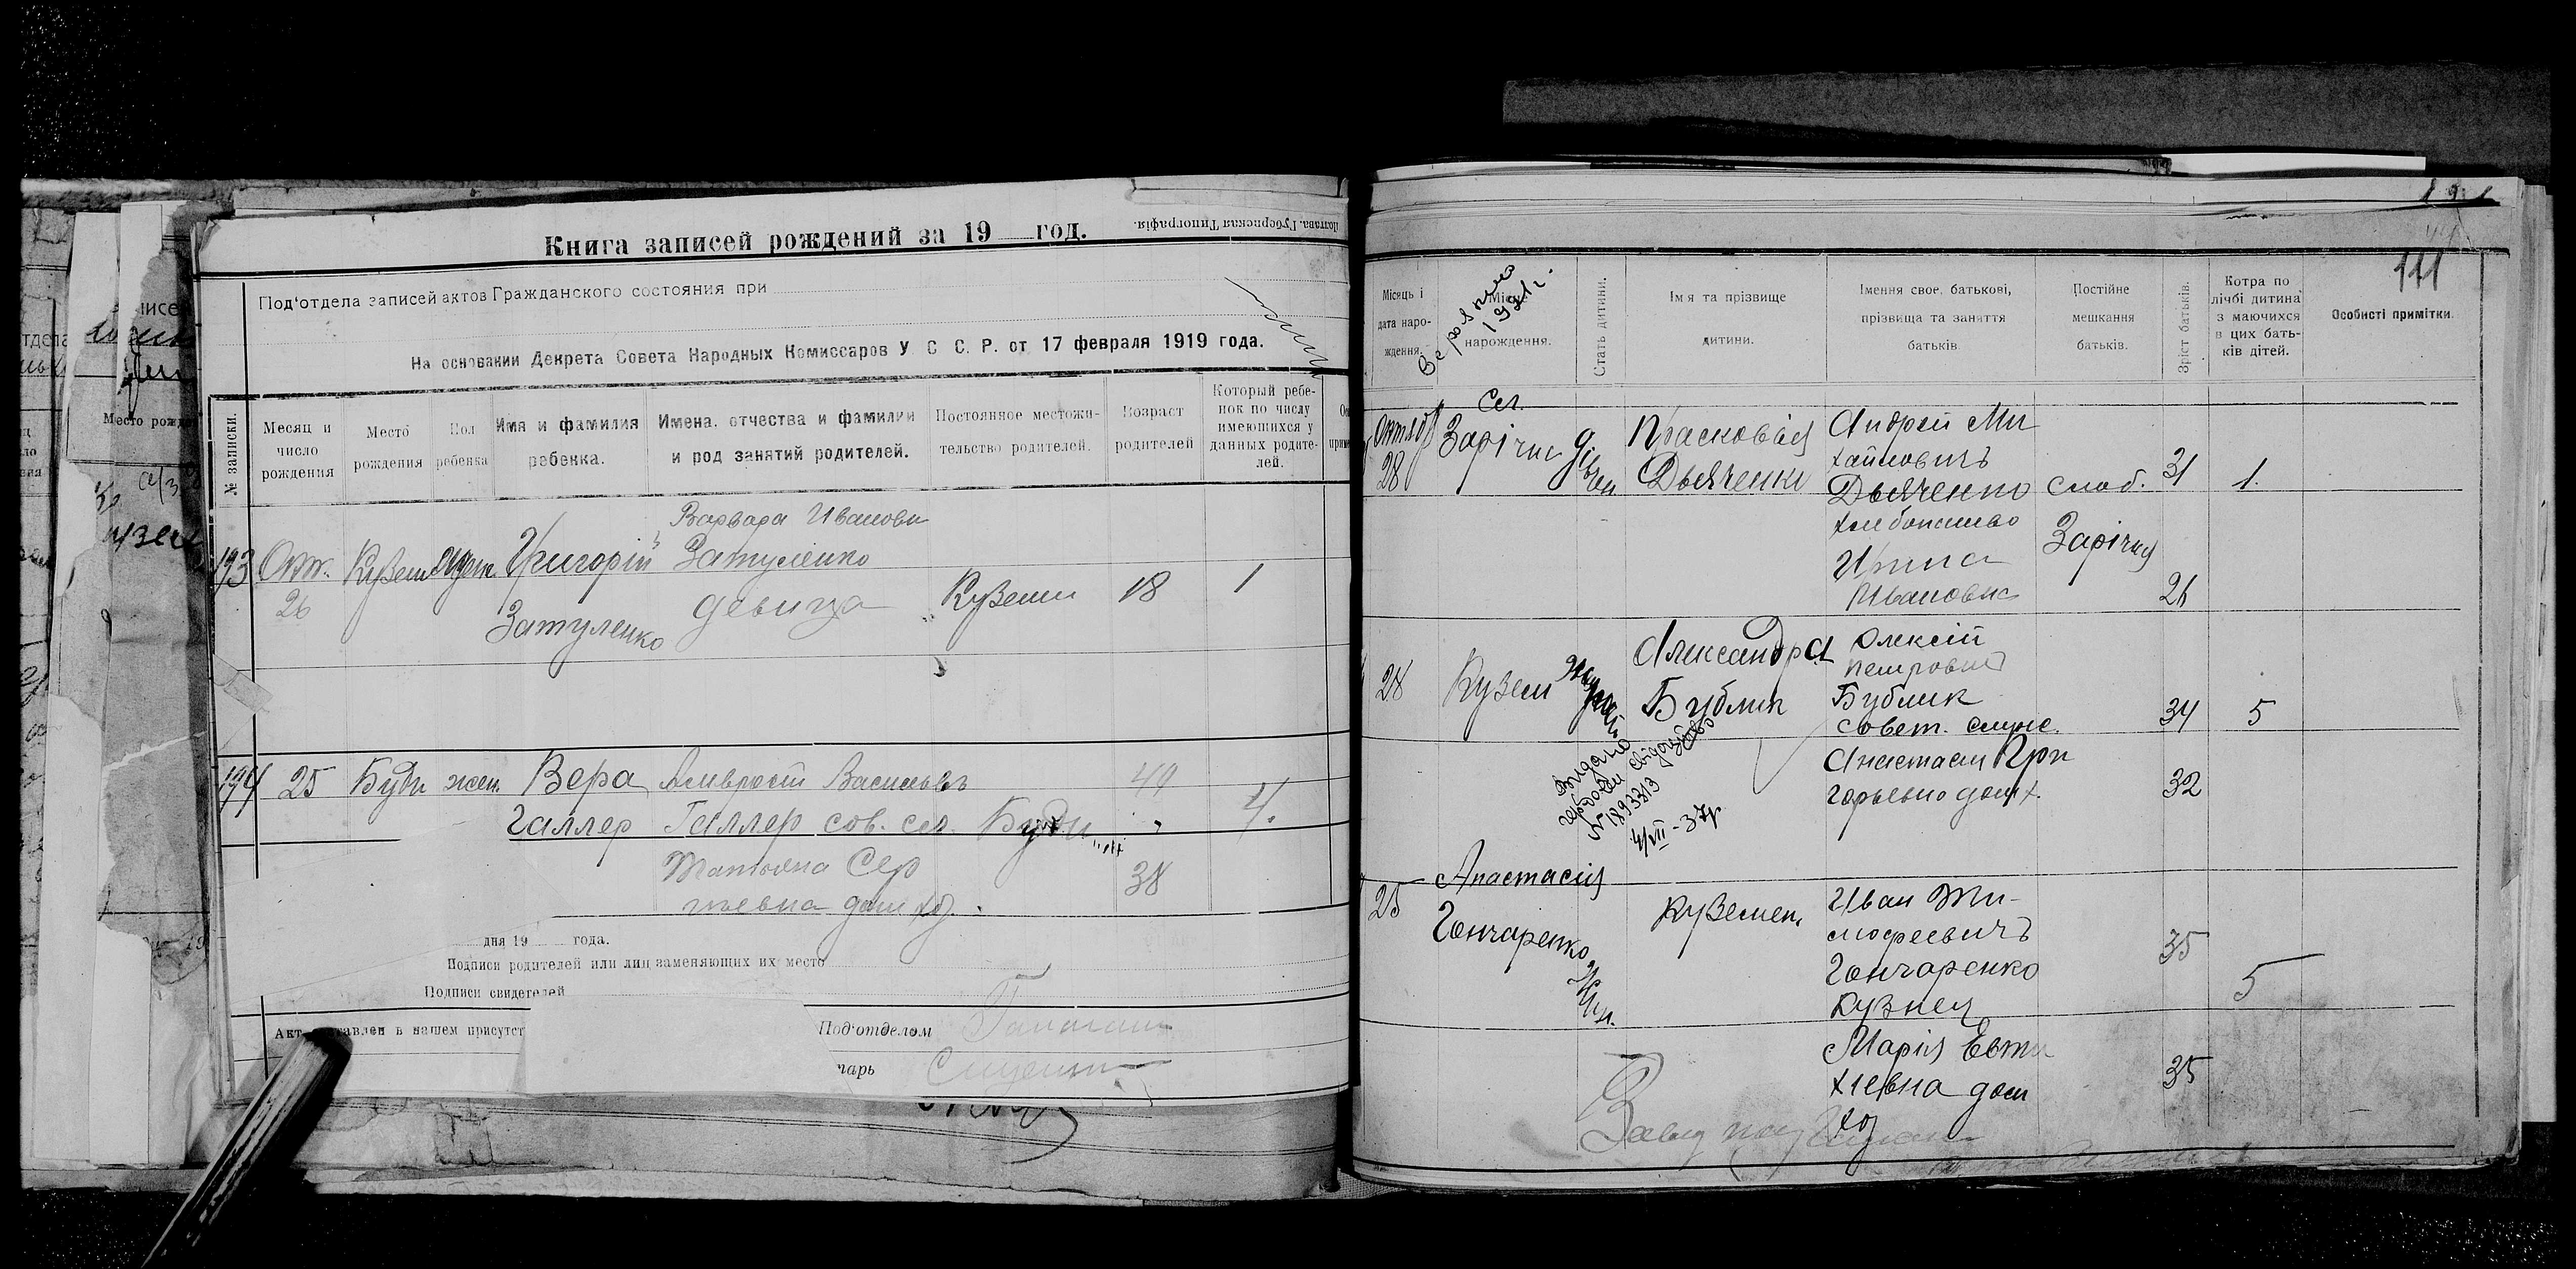 Книга записей рождений за 19 год.
Полтава. Губернская Типографія.
Под'отдела записей актов Гражданского состояния при
На основании Декрета Совета Народных Комиссаров У С С. Р. от 17 февраля 1919 года.
№ записки.
Месяц и число рождения
Место рождения
Пол ребенка
Имя и фамилия ребенка.
Имена, отчества и фамилии и род занятий родителей.
Постоянное местожительство родителей.
Возраст родителей
Который ребенок по числу имеющихся у данных родителей.
193 Окт. 26
Григорій Затуленко
Варвара Ивановн
Затуленко
девица
Куземи 18 1
194 25 Буди жен. Вера Амвросій Васильевъ 49
Галлер Галлер сов. сл. Буди 4.
Татьяна Сер
гиевна дом хоз. 38
дня 19 года.
Подписи родителей или лиц заменяющих их место
Подписи свидетелей
Акт составлен в нашем присутст
Под'отделом
чарь
111
Місяць і дата народження.
Місце нарождення.
1921г.
Стать дитини.
Імя та прізвище дитини.
Імення своє, батькові, прізвища та заняття батьків
Постійне мешкання батьків.
Зріст батьків.
Котра по лічбі дитина з маючихся в цих батьків дітей.
Особисті примітки.
Сел.
Октяб 28 Зарічне
Прасковія
Дьяченко
Андрей Ми
хайловичъ
Дьяченко
хлебопашво
слоб. Зарічня
31 1.
Ирина
Ивановна 26
28 Кузем
Александра
Бублик
Олексій
Петрович
Бублик
совет. служ. 34 5
Анастасия Гри
горьевна дом х. 32
Видано
свідоцтво
№ 1893313
4/VII - 37р
25 Анастасія
Гончаренко
Куземен.
Иван Ти-
мофеевичъ
Гончаренко
кузнец
35 5
Марія Евти
хіевна дом
хоз
35